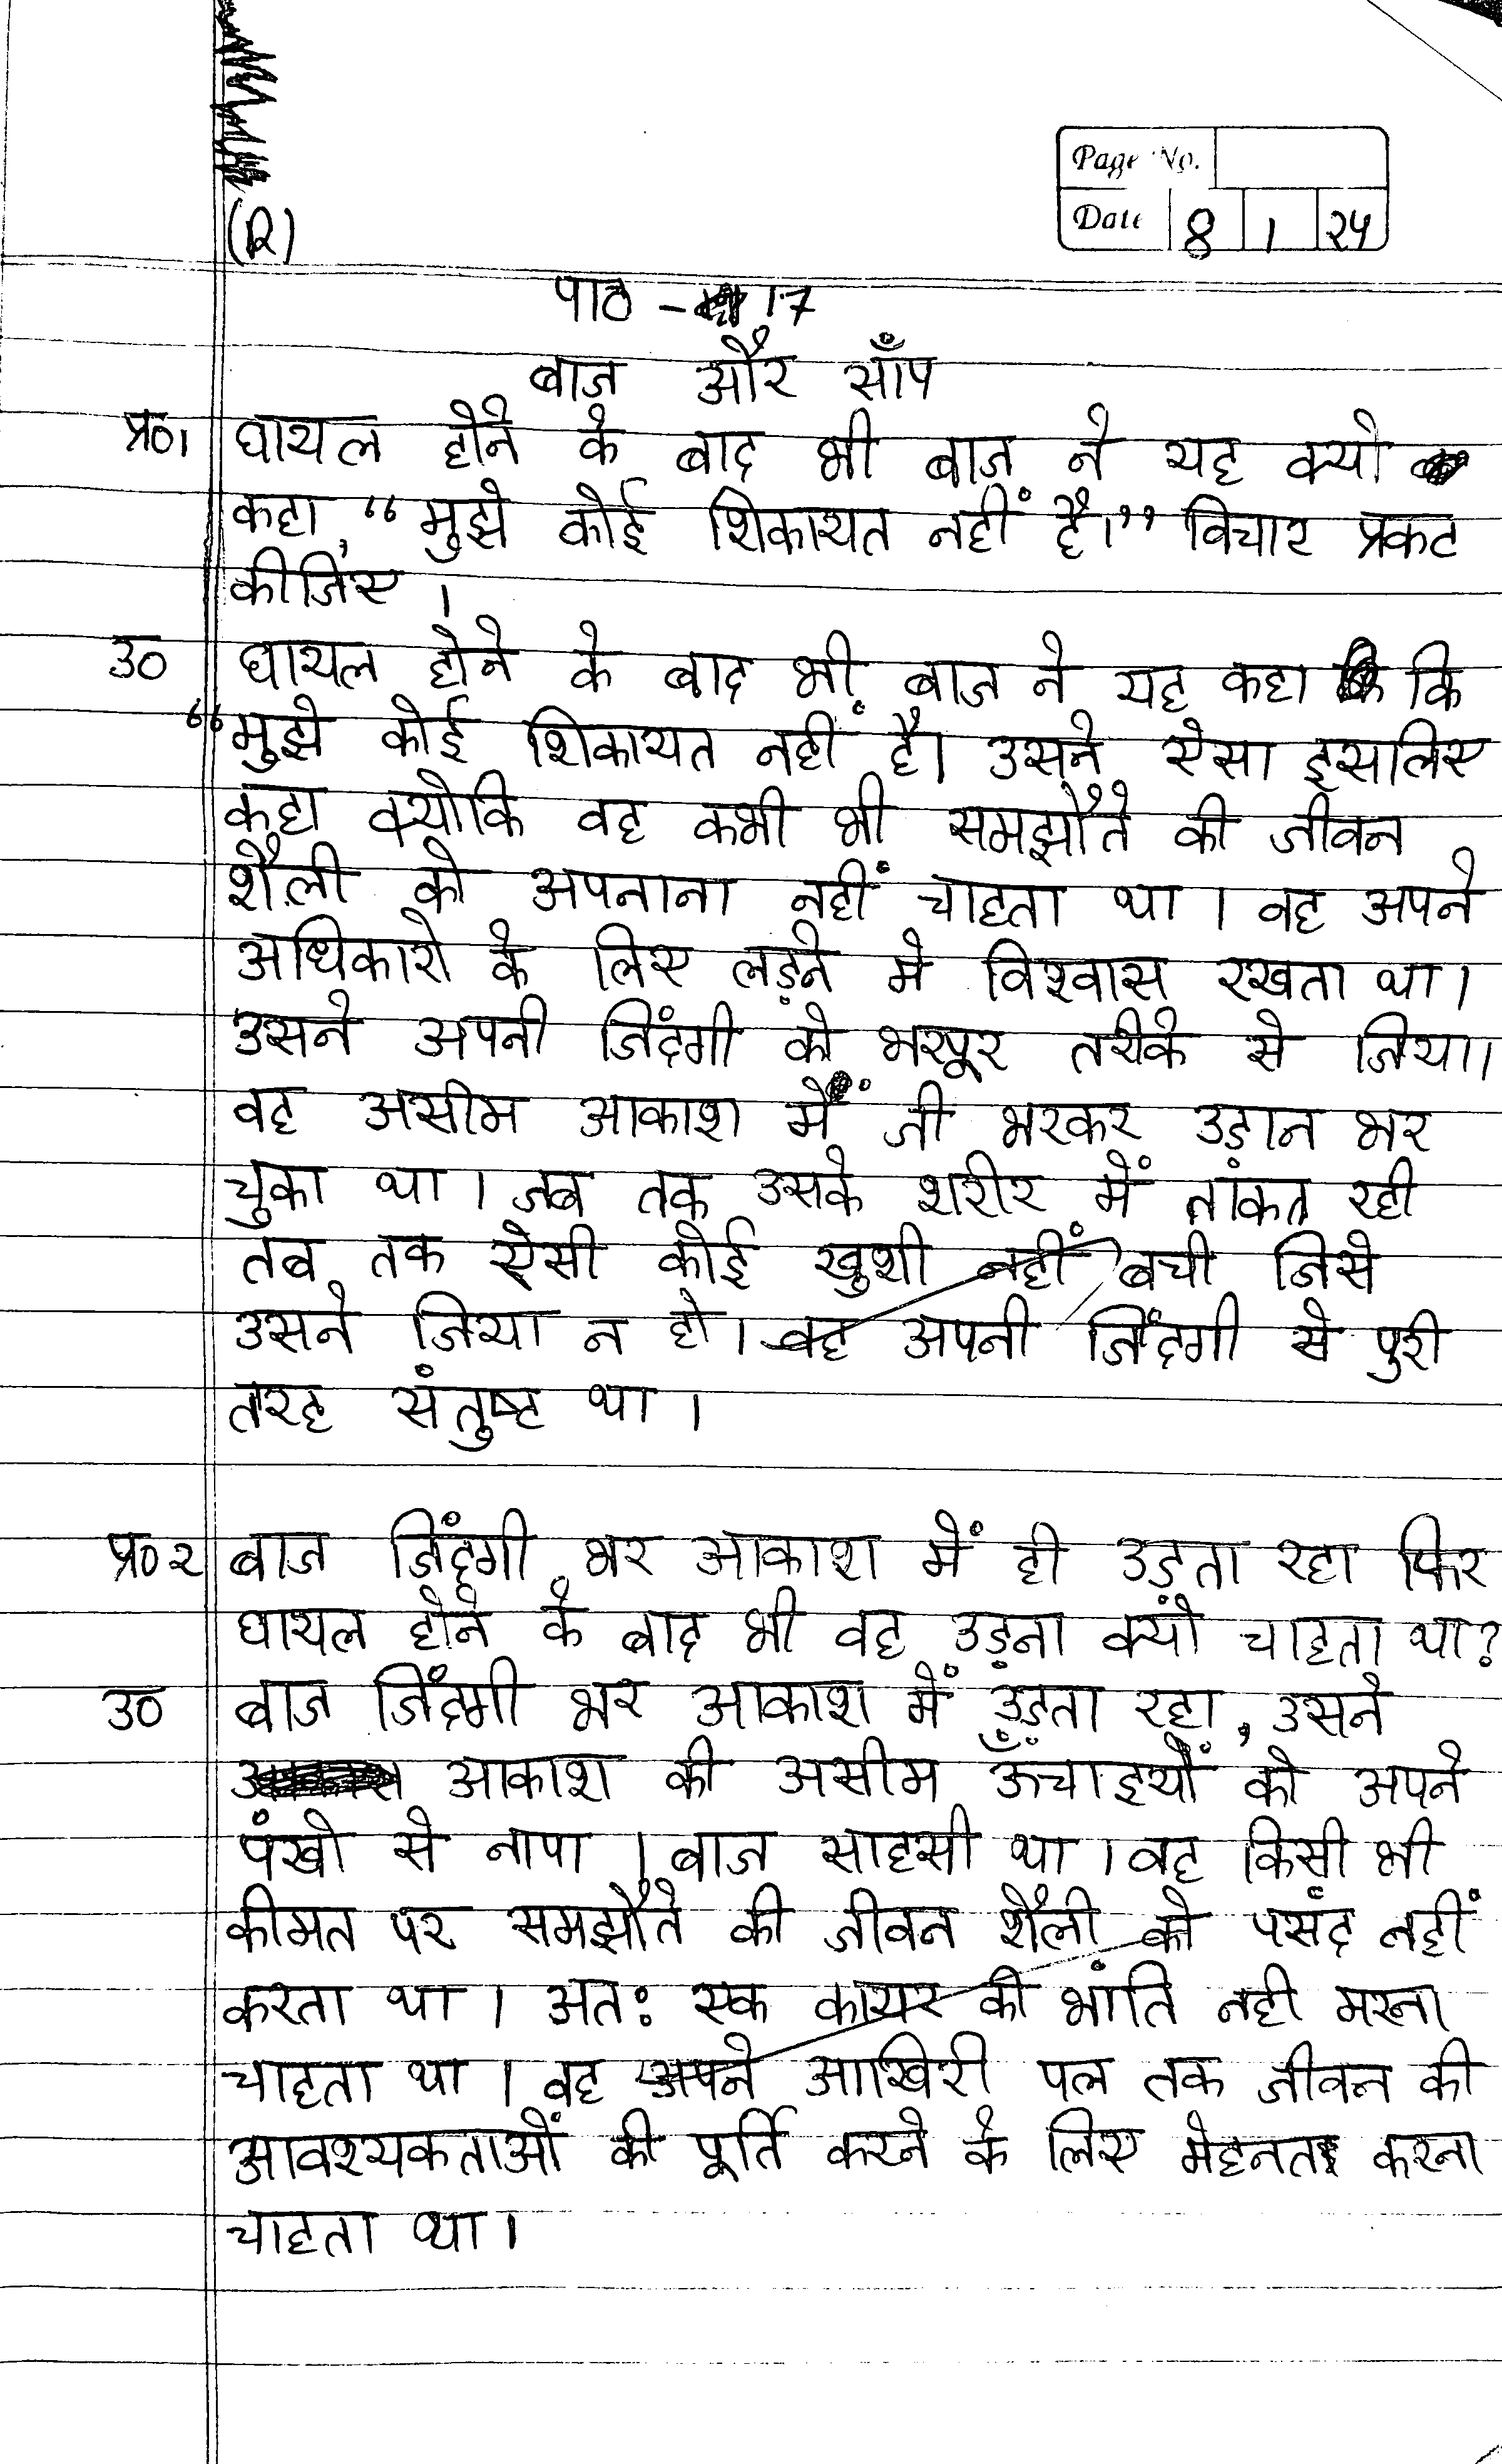 Page No.
Date 8 1 24
(R)
पाठ - 17
बाज और साँप
प्र०1 घायल होने के बाद भी बाज ने यह क्यो
कहा, “मुझे कोई शिकायत नहीं है।” विचार प्रकट
कीजिए ।
उ० घायल होने के बाद भी बाज ने यह कहा कि
“मुझे कोई शिकायत नहीं है। उसने ऐसा इसलिए
कहा क्योकि वह कभी भी समझौते की जीवन
शैली को अपनाना नहीं चाहता था । वह अपने
अधिकारो के लिए लड़ने मे विश्वास रखता था।
उसने अपनी जिंदगी को भरपूर तरीके से जिया।
वह असीम आकाश में जी भरकर उड़ान भर
चुका था । जब तक उसके शरीर में तांकत रही
तब तक ऐसी कोई खुशी नहीं बची जिसे
उसने जिया न हो । वह अपनी जिंदगी से पुरी
तरह संतुष्ट था ।
प्र० २ बाज जिंदगी भर आकाश में ही उड़ता रहा फिर
घायल होने के बाद भी वह उड़ना क्यों चाहता था?
उ० बाज जिंदगी भर आकाश में उड़ता रहा, उसने
आकाश की असीम ऊँचाइयों को अपने
पंखो से नापा । बाज साहसी था । वह किसी भी
कीमत पर समझौते की जीवन शैली को पसंद नहीं
करता था । अतः एक कायर की भांति नही मरना
चाहता था । वह अपने आखिरी पल तक जीवन की
आवश्यकताओं की पूर्ति करने के लिए मेहनत करना
चाहता था ।